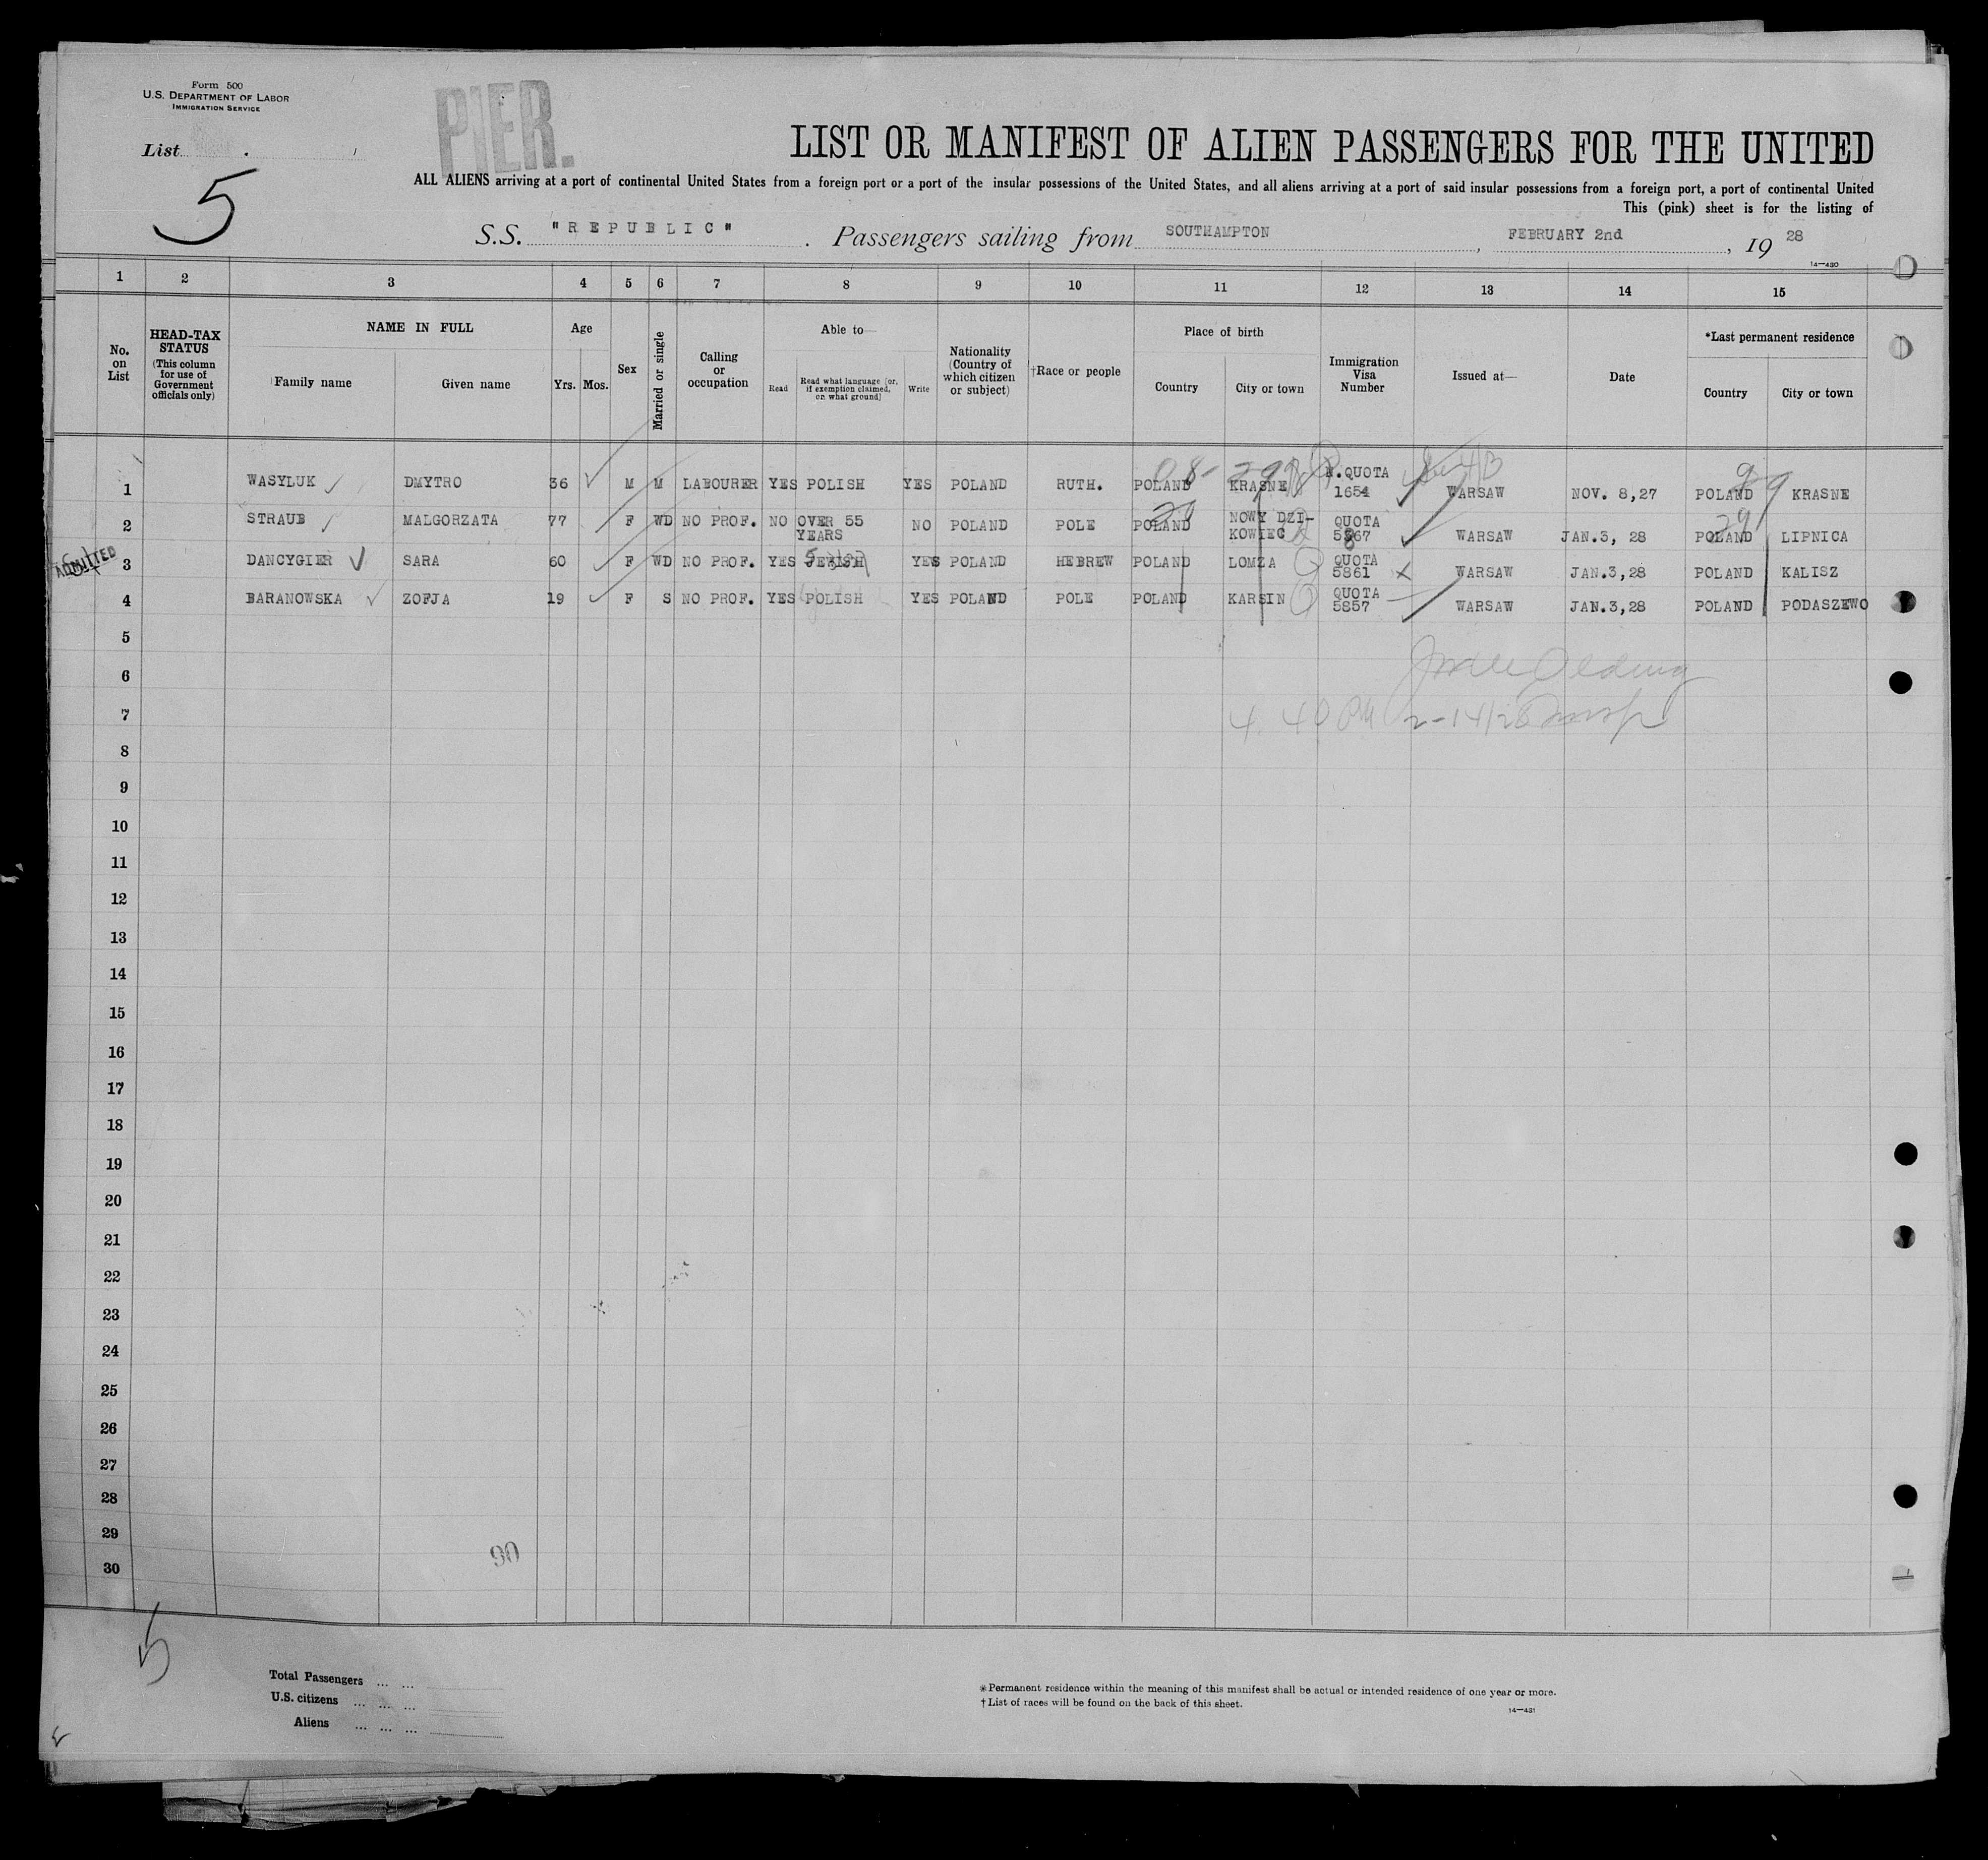 Form 500
U.S. DEPARTMENT OF LABOR
IMMIGRATION SERVICE
PIER.
List
5
LIST OR MANIFEST OF ALIEN PASSENGERS FOR THE UNITED
ALL ALIENS arriving at a port of continental United States from a foreign port or a port of the insular possessions of the United States, and all aliens arriving at a port of said insular possessions from a foreign port, a port of continental United
This (pink) sheet is for the listing of
S.S. "REPUBLIC". Passengers sailing from SOUTHAMPTON, FEBRUARY 2nd, 19 28
14—430
1 2 3 4 5 6 7 8 9 10 11 12 13 14 15
No. on List
HEAD-TAX STATUS (This column for use of Government officials only)
NAME IN FULL
Family name Given name
Age
Yrs. Mos.
Sex
Married or single
Calling or occupation
Able to—
Read
Read what language (or, if exemption claimed, on what ground)
Write
Nationality (Country of which citizen or subject)
†Race or people
Place of birth
Country City or town
Immigration Visa Number
Issued at—
Date
*Last permanent residence
Country City or town
1 WASYLUK DMYTRO 36 M M LABOURER YES POLISH YES POLAND RUTH. POLAND KRASNE N.QUOTA 1654 WARSAW NOV. 8,27 POLAND KRASNE
2 STRAUB MALGORZATA 77 F WD NO PROF. NO OVER 55 YEARS NO POLAND POLE POLAND NOWY DZI-KOWIEC QUOTA 5867 WARSAW JAN.3, 28 POLAND LIPNICA
ADMITTED
3 DANCYGIER SARA 60 F WD NO PROF. YES JEWISH YES POLAND HEBREW POLAND LOMZA QUOTA 5861 WARSAW JAN.3,28 POLAND KALISZ
4 BARANOWSKA ZOFJA 19 F S NO PROF. YES POLISH YES POLAND POLE POLAND KARSIN QUOTA 5857 WARSAW JAN.3,28 POLAND PODASZEWO
5
6
7 4.40 PM 2-14/28
8
9
10
11
12
13
14
15
16
17
18
19
20
21
22
23
24
25
26
27
28
29
90
30
5
Total Passengers ... ...
U.S. citizens ... ... ...
Aliens ... ... ...
*Permanent residence within the meaning of this manifest shall be actual or intended residence of one year or more.
†List of races will be found on the back of this sheet.
14—431